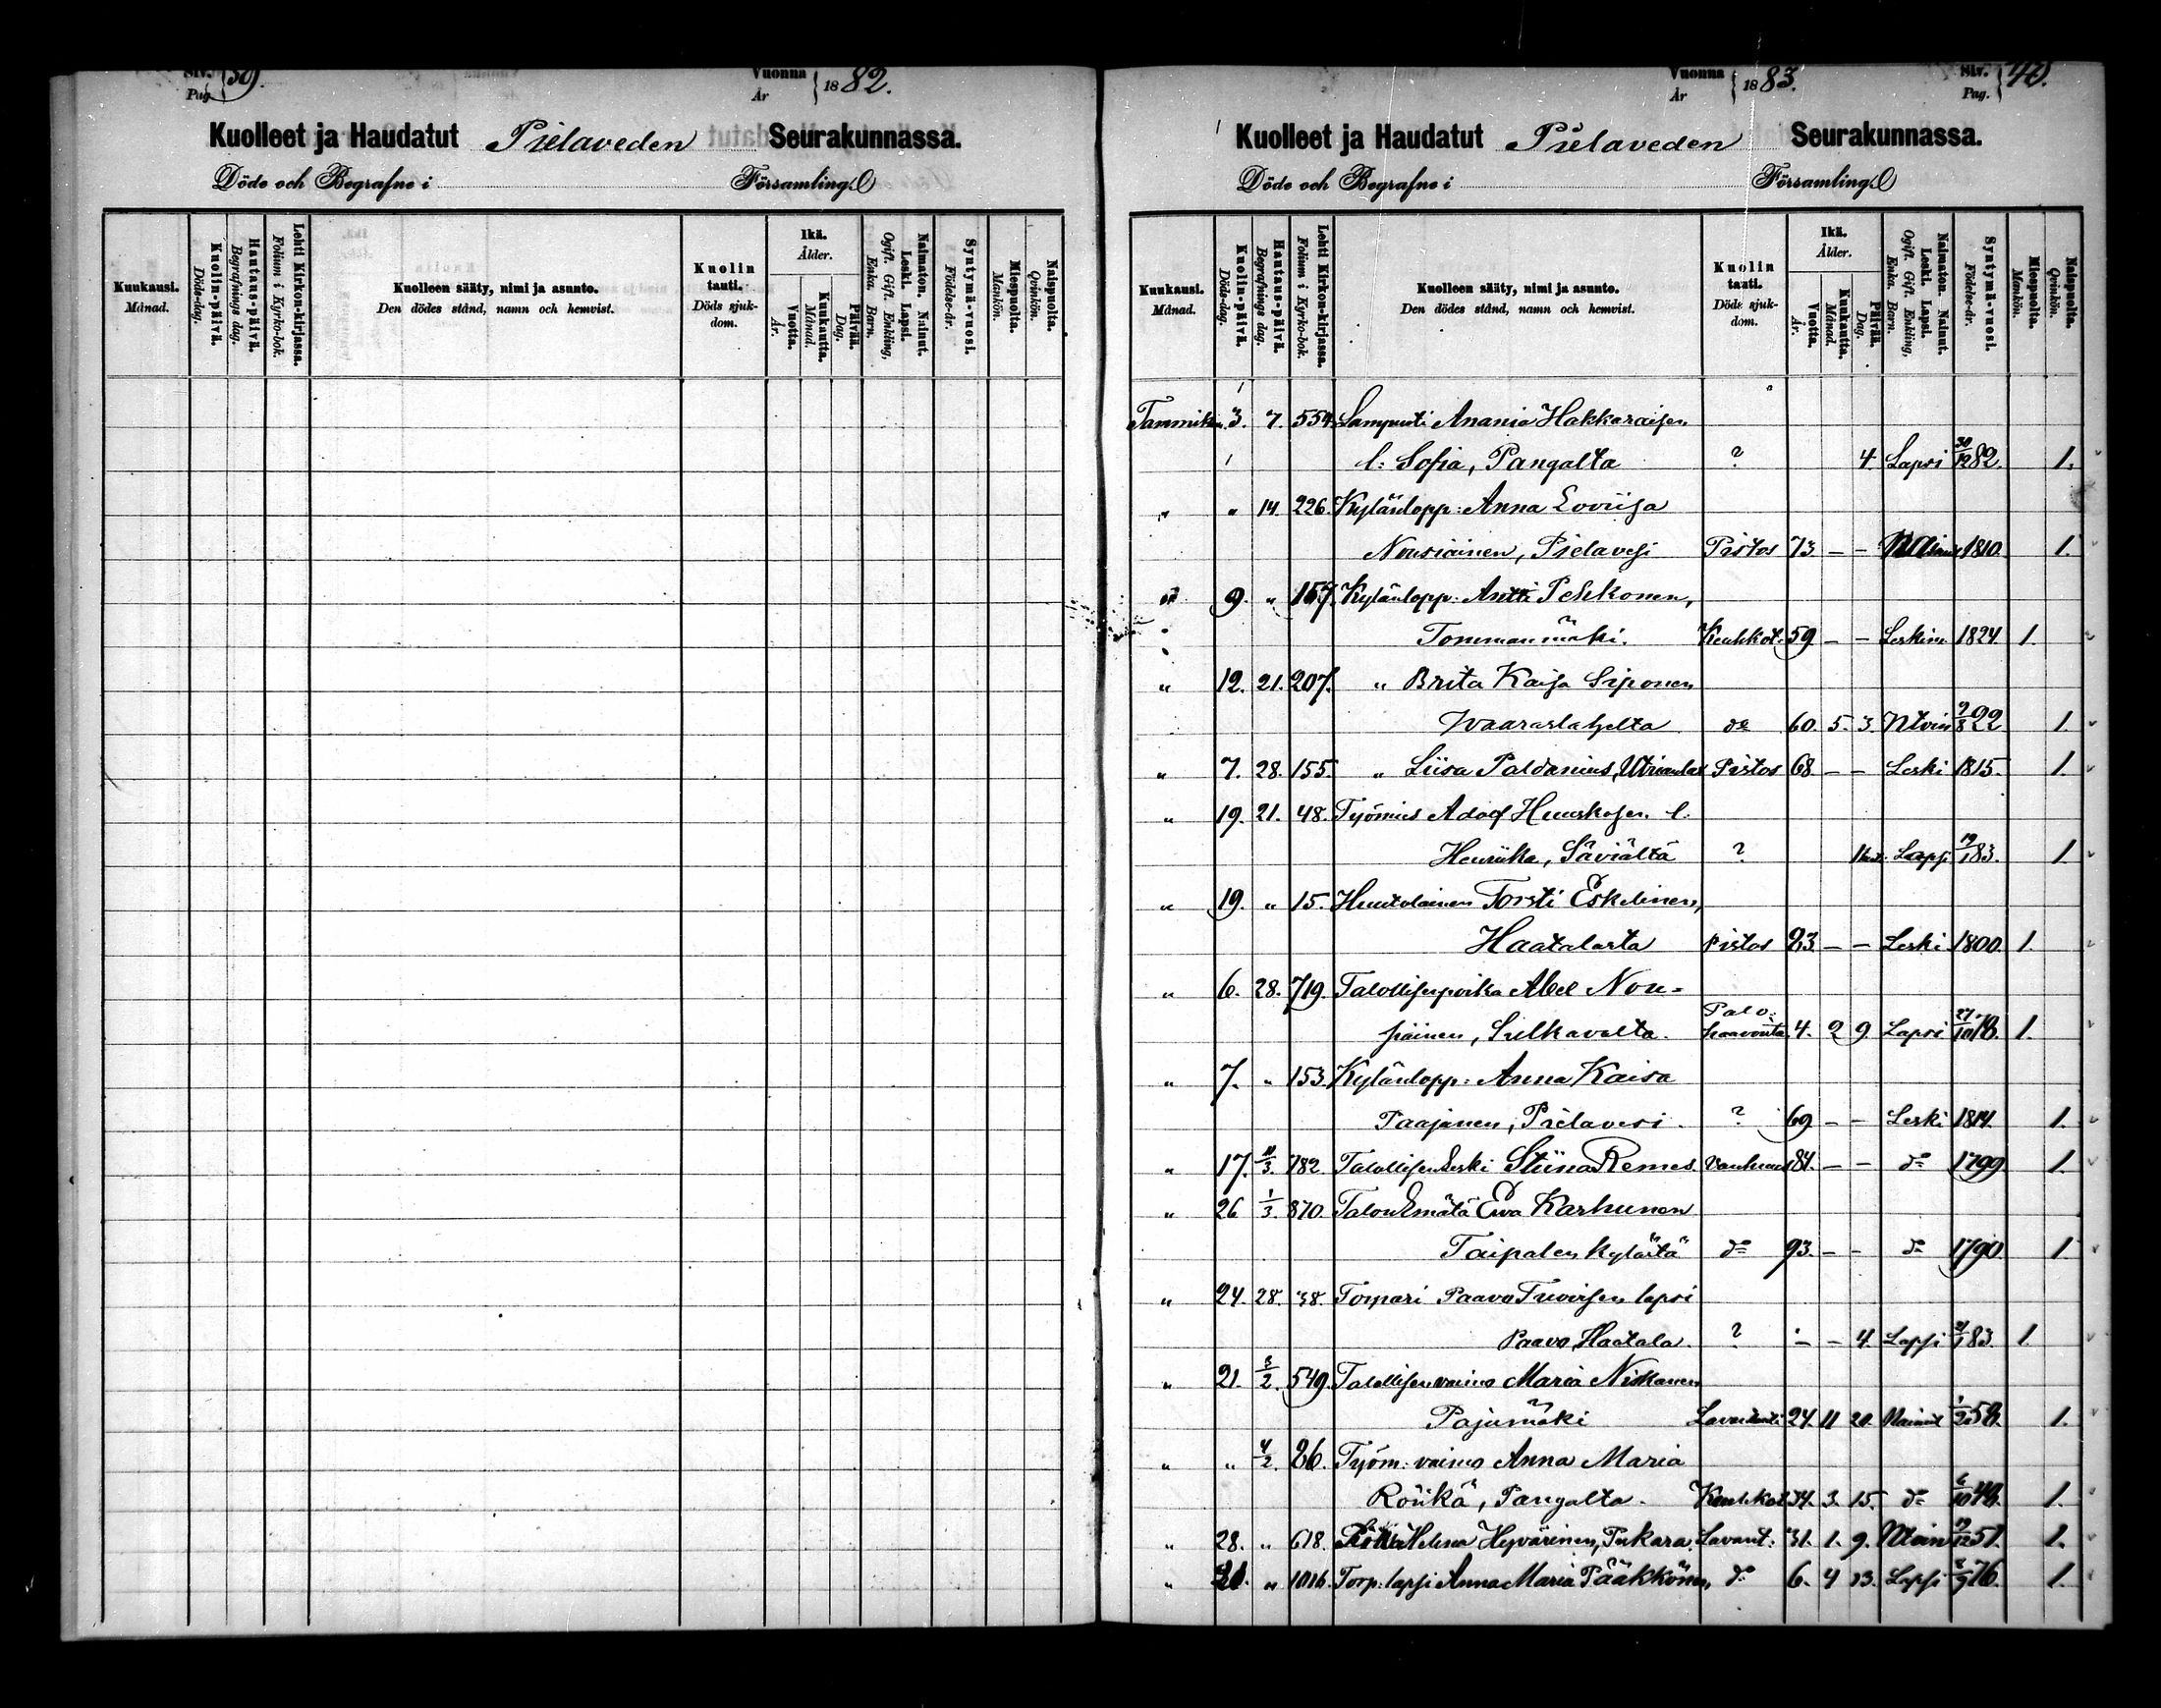 Siv. Pag. 39.
Vuonna År 1882.
Kuolleet ja Haudatut Pielaveden Seurakunnassa.
Döde och Begrafne i Församling.
Kuukausi. Månad.
Kuolin-päivä. Döds-dag.
Hautaus-päivä. Begrafnings dag.
Lehti Kirkon-kirjassa. Folium i Kyrko-bok.
Kuolleen sääty, nimi ja asunto.
Den dödes stånd, namn och hemvist.
Kuolin tauti. Döds sjuk-dom.
Ikä. Ålder.
Vuotta. År.
Kuukautta. Månad.
Päivää. Dag.
Naimaton. Nainut. Leski. Lapsi. Ogift. Gift. Enkling, Enka. Barn.
Syntymä-vuosi. Födelse-år.
Miespuolta. Mankön.
Naispuolta. Qvinkön.
Vuonna År 1883.
Siv. Pag. 40.
Kuolleet ja Haudatut Pielaveden Seurakunnassa.
Döde och Begrafne i Församling.
Kuukausi. Månad.
Kuolin-päivä. Döds-dag.
Hautaus-päivä. Begrafnings dag.
Lehti Kirkon-kirjassa. Folium i Kyrko-bok.
Kuolleen sääty, nimi ja asunto.
Den dödes stånd, namn och hemvist.
Kuolin tauti. Döds sjuk-dom.
Ikä. Ålder.
Vuotta. År.
Kuukautta. Månad.
Päivää. Dag.
Naimaton. Nainut. Leski. Lapsi. Ogift. Gift. Enkling, Enka. Barn.
Syntymä-vuosi. Födelse-år.
Miespuolta. Mankön.
Naispuolta. Qvinkön.
Tammik. 3. 7. 554. Lampuoti Anania Hakkaraisen
l: Sofia, Pangalta ? 4 Lapsi 30/12 82. 1.
" " 14. 226. Kylänlopp: Anna Loviisa
Nousiainen, Pielavesi Pistos 73 – – 1810. 1.
9. " 157. Kylänlopp: Antti Pehkonen,
Tommanmäki. Keuhkot. 59 – – Leskim. 1824. 1.
" 12. 21. 207. " Brita Kaisa Siponen
Waaraslahdelta do 60. 5. 3. Ntoin 9/8 22 1.
" 7. 28. 155. " Liisa Paldanius, Pistos 68 – – Leski 1815. 1.
" 19. 21. 48. Työmies Adolf Huuskosen l.
Henriika, Säviältä ? Lapsi 19/1 83. 1.
" 19. " 15. Huutolainen Torsti Eskelinen,
Haatalasta Pistos 83 – – Leski 1800. 1.
" 6. 28. 719. Talollisenpoika Abel Nou=
siainen, Sulkavalta. Palo: haavoista 4. 2 9. Lapsi 27/10 78. 1.
" 7. " 153. Kylänlopp: Anna Kaisa
Taajanen, Pielavesi. ? 69 – – Leski 1814. 1.
" 17. 11/3. 782. Talollisen Leski Stiina Remes. Vanhuus 84. – – do 1799 1.
" 26 1/3. 870. Talon Emätä Ewa Karhunen
Taipaleen kylästä do 93. – – do 1790 1.
" 24. 28. 38. Torpari Paavo lapsi
Paavo, Haatala. ? – – 4. Lapsi 21/1 83. 1.
" 21. 3/2. 549. Talollisen vaimo Maria Niskanen
Pajumäki 24. 11 20. Nainut 58. 1.
" " 4/2. 26. Työm: vaimo Anna Maria
Rönkä, Pangalta. Keuhkot 34. 3. 15. do 6/10 48. 1.
" 28. " 618. Helena Hyvärinen, Pukara. Lavant. 31. 1. 9. Ntoin 19/12 51. 1.
" " 1016. Torp: lapsi Anna Maria Pääkkönen, do 6. 4 23. Lapsi 8/9 76. 1.